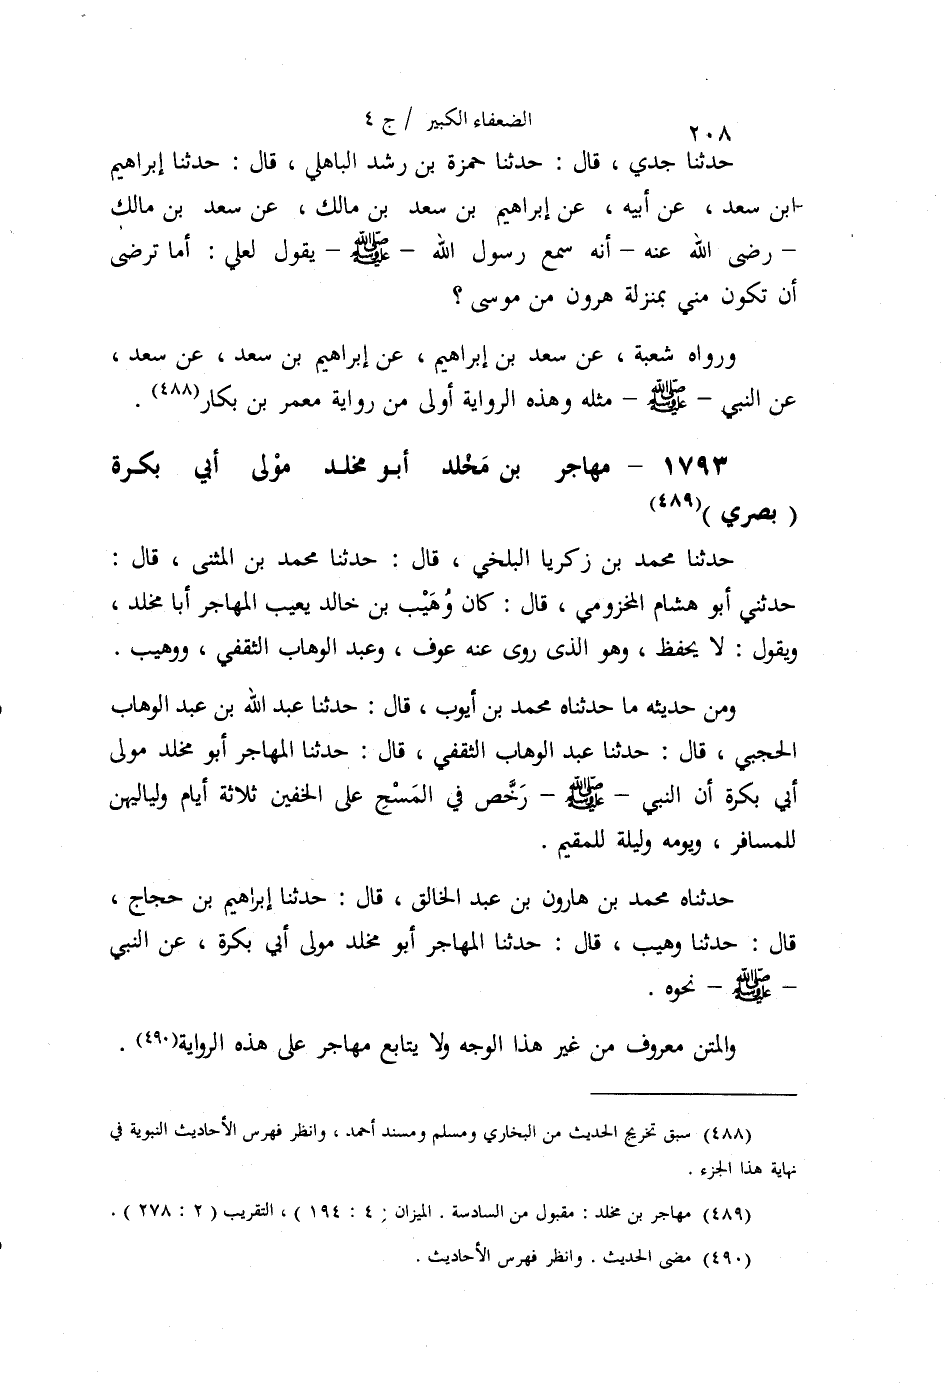 الضعفاء الكبير / ج ٤
٢٠٨
حدثنا جدي ، قال : حدثنا حمزة بن رشد الباهلي ، قال : حدثنا إبراهيم
ابن سعد ، عن أبيه ، عن إبراهيم بن سعد بن مالك ، عن سعد بن مالك
– رضى الله عنه – أنه سمع رسول الله – ﷺ – يقول لعلي : أما ترضى
أن تكون مني بمنزلة هرون من موسى ؟
ورواه شعبة ، عن سعد بن إبراهيم ، عن إبراهيم بن سعد ، عن سعد ،
عن النبي – ﷺ – مثله وهذه الرواية أولى من رواية معمر بن بكار(٤٨٨) .
١٧٩٣ – مهاجر بن مَخْلد أبو مخلد موْلى أبي بكرة
( بصري )(٤٨٩)
حدثنا محمد بن زكريا البلخي ، قال : حدثنا محمد بن المثنى ، قال :
حدثني أبو هشام المخزومي ، قال : كان وُهَيْب بن خالد يعيب المهاجر أبا مخلد ،
ويقول : لا يحفظ ، وهو الذى روى عنه عوف ، وعبد الوهاب الثقفي ، ووهيب .
ومن حديثه ما حدثناه محمد بن أيوب ، قال : حدثنا عبد الله بن عبد الوهاب
الحجبي ، قال : حدثنا عبد الوهاب الثقفي ، قال : حدثنا المهاجر أبو مخلد مولى
أبي بكرة أن النبي – ﷺ – رَخَّص في المَسْح على الخفين ثلاثة أيام ولياليهن
للمسافر ، ويومه وليلة للمقيم .
حدثناه محمد بن هارون بن عبد الخالق ، قال : حدثنا إبراهيم بن حجاج ،
قال : حدثنا وهيب ، قال : حدثنا المهاجر أبو مخلد مولى أبي بكرة ، عن النبي
– ﷺ – نحوه .
والمتن معروف من غير هذا الوجه ولا يتابع مهاجر على هذه الرواية(٤٩٠) .
(٤٨٨) سبق تخريج الحديث من البخاري ومسلم ومسند أحمد ، وانظر فهرس الأحاديث النبوية في
نهاية هذا الجزء .
(٤٨٩) مهاجر بن مخلد : مقبول من السادسة . الميزان ; ٤ : ١٩٤ ) ، التقريب ( ٢ : ٢٧٨ ) .
(٤٩٠) مضى الحديث . وانظر فهرس الأحاديث .